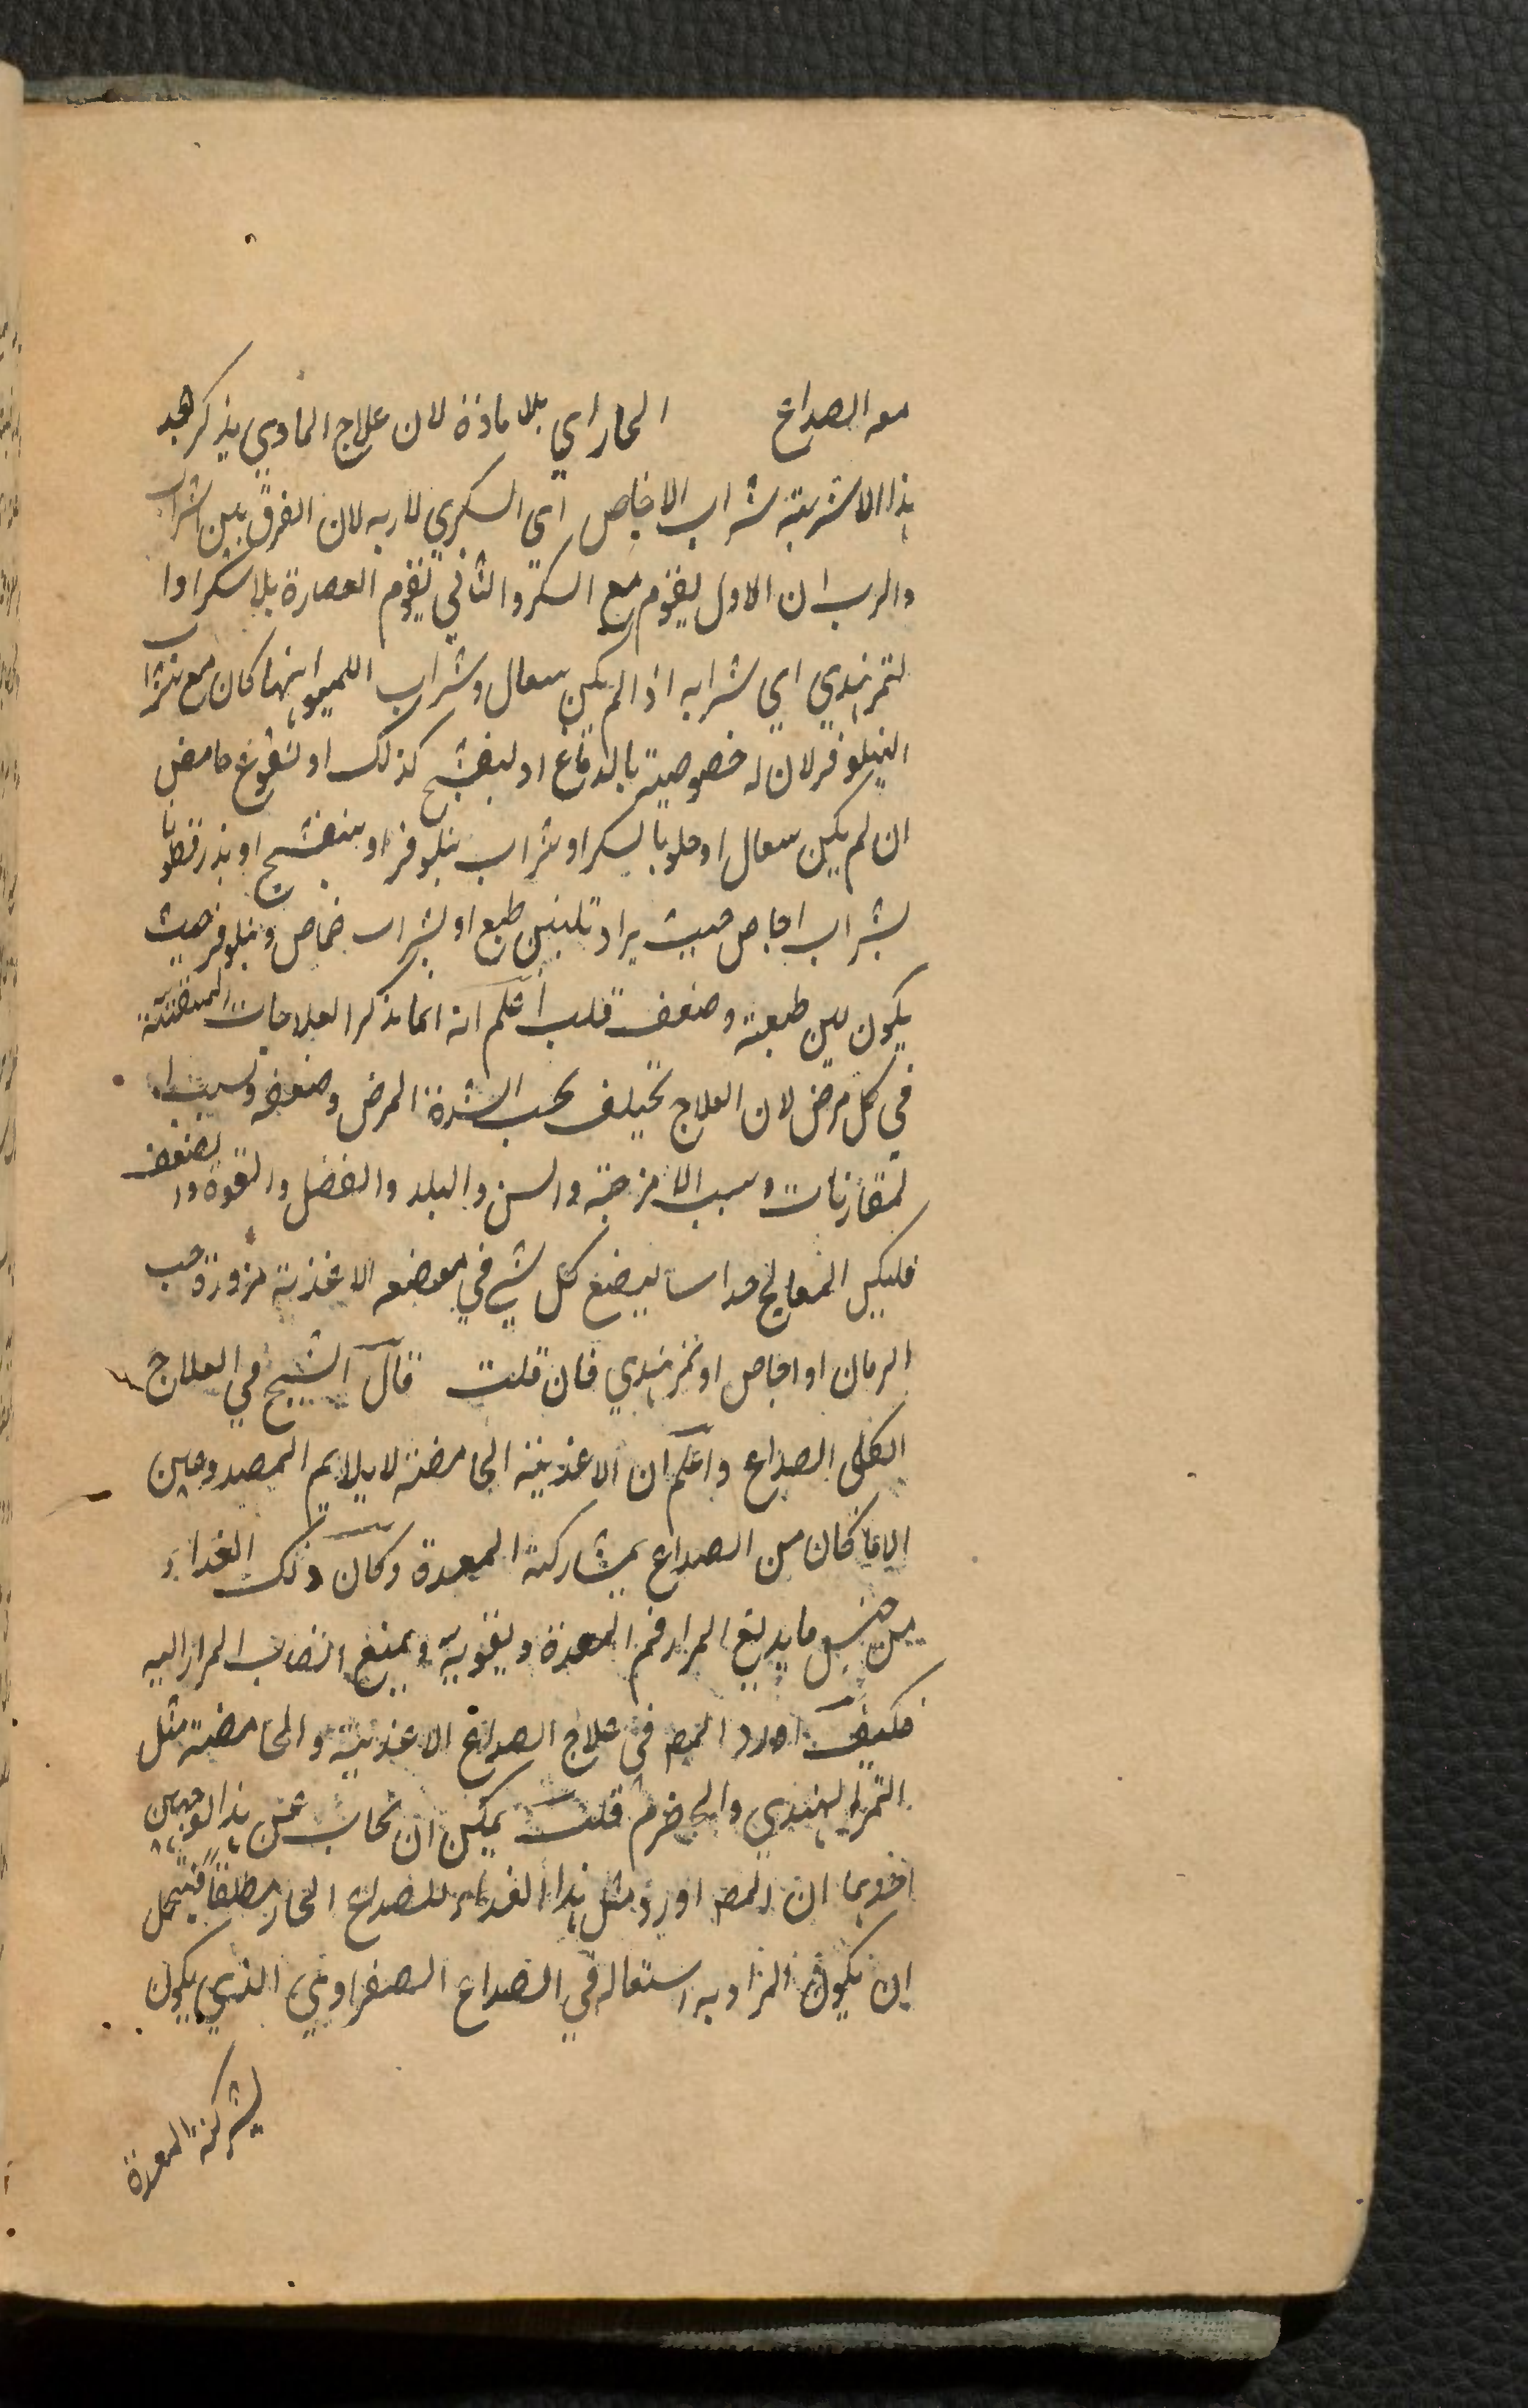 معه الصداع الحار اي بلا مادة لان علاج المادي يذكر بعد
هذا الاشربة شراب الاجاص اي السكري لا ربه لان الفرق بين الشراب
والرب ان الاول يقوم مع السكر والثاني يقوم العصارة بلا سكر اوا
لتمرهندي اي شرابه اذا لم يكن سعال وشراب الليمو ايهما كان مع شراب
النيلوفر لان له خصوصية بالدماغ او بنفسج كذلك او نقوع حامض
ان لم يكن سعال او حلو بالسكر او شراب نيلوفر او بنفسج او بذر قطونا
بشراب اجاص حيث يراد تليين طبع او بشراب حماض ونيلوفر حيث
يكون لين طبعة وضعف قلب اعلم انه انما يذكر العلاجات المتفننة
في كل مرض لان العلاج تختلف بحسب الشدة المرض وضعفه وبسبب ا
لمقارنات وسبب الامزجة والسن والبلد والفصل والقوة والضعف
فليكن المعالج حداسا ليضع كل شي في موضعه الاغذية مزورة حب
الرمان او اجاص او تمرهندي فان قلت قال الشيخ في العلاج
الكلي الصداع واعلم ان الاغذية الحامضة لا يلايم المصدوعين
الا ما كان من الصداع بمشاركة المعدة وكان ذلك الغذاء
من جنس ما يدبغ المراد فم المعدة ويقويه ويمنع انصاب المرار اليه
فكيف اورد المص في علاج الصداع الاغذية والحامضة مثل
التمر الهندي والحصرم قلت يمكن ان يجاب عن هذا لوجهين
احدهما ان المص اورد مثل هذا الغذاء للصداع الحار مطلقا فيحتمل
ان يكون المراد به استعماله في الصداع الصفراوي الذي يكون
بشركة المعدة